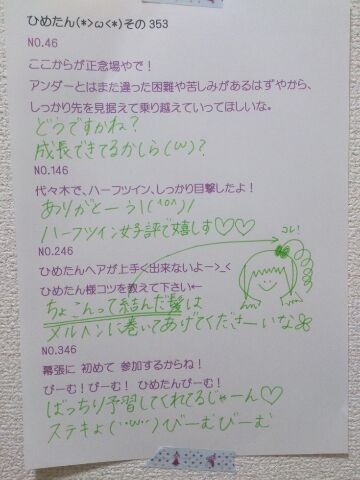 ひめたん(*>ω<*)その353
NO.46
ここからが正念場やで！
アンダーとはまた違った困難や苦しみがあるはずやから、
しっかり先を見据えて乗り越えていってほしいな。
どうですかね？
成長できてるかしら(ω)？
NO.146
代々木で、ハーフツイン、しっかり目撃したよ！
ありがとーう!(^o^)/
ハーフツイン女子評で嬉しす♡♡
NO.246
コレ！
ひめたんヘアが上手く出来ないよー>_<
ひめたん様コツを教えて下さい←
ちょこんって結んだ髪は
メルヘンに巻いてあげてくださーいな
NO.346
幕張に 初めて 参加するからね！
びーむ！びーむ！ ひめたんびーむ！
ばっちり予習してくれてるじゃーん♡
ステキょ(¨ω¨)びーむびーむ